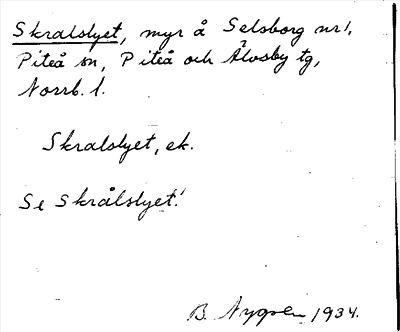 Skralslyet, myr å Selsborg nr 1,
Piteå sn, Piteå och Älvsby tg,
Norrb. l.
Skralslyet, ek.
Se Skrålslyet!
B. Nygren 1934.